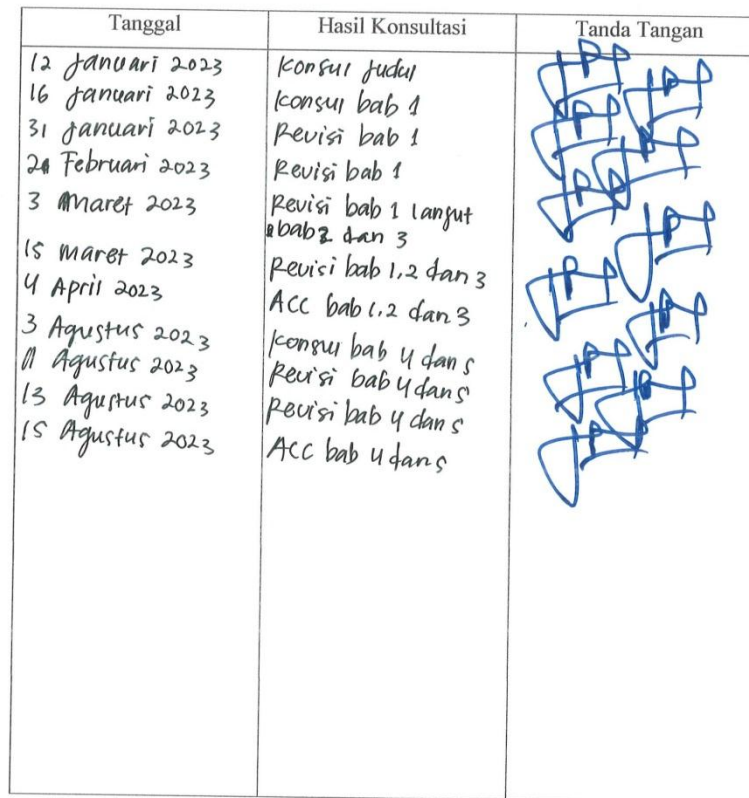 Tanggal Hasil Konsultasi Tanda Tangan
12 Januari 2023 Konsul Judul
16 Januari 2023 Konsul bab 1
31 Januari 2023 Revisi bab 1
Februari 2023 Revisi bab 1
3 Maret 2023 Revisi bab 1 lanjut
bab 2 dan 3
15 Maret 2023 Revisi bab 1,2 dan 3
4 April 2023 ACC bab 1,2 dan 3
3 Agustus 2023 Konsul bab 4 dan 5
11 Agustus 2023 Revisi bab 4 dan 5
13 Agustus 2023 Revisi bab 4 dan 5
15 Agustus 2023 ACC bab 4 dan 5